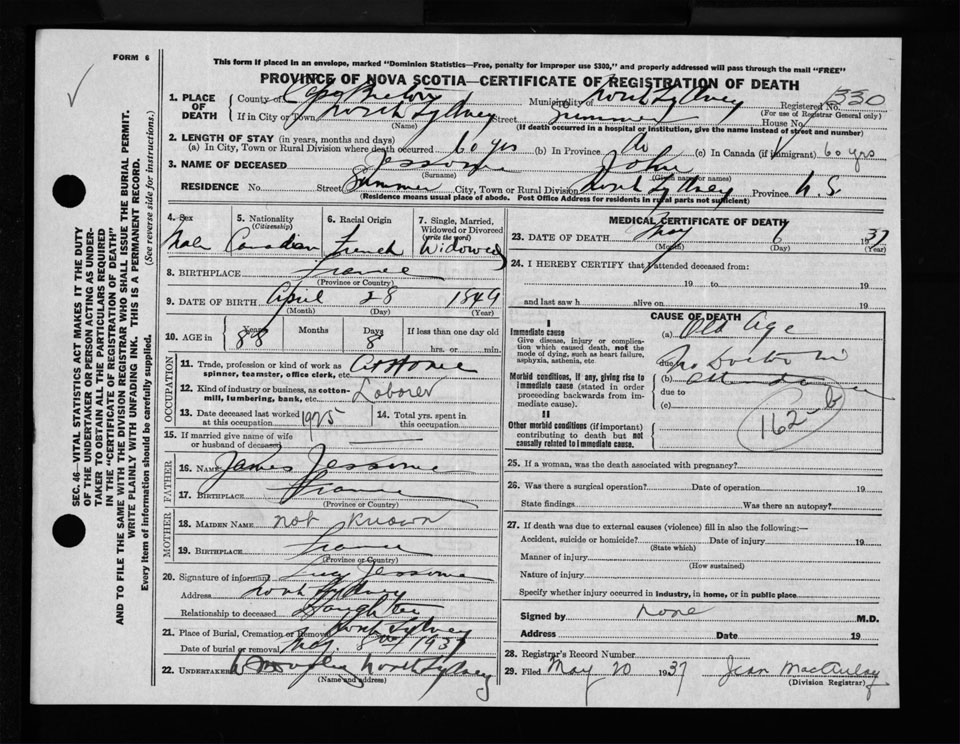 FORM 6
This form if placed in an envelope, marked "Dominion Statistics—Free, penalty for improper use $300," and properly addressed will pass through the mail "FREE"
PROVINCE OF NOVA SCOTIA—CERTIFICATE OF REGISTRATION OF DEATH
1. PLACE OF DEATH
County of Cape Breton Municipality of North Sydney Registered No. 330
(For use of Registrar General only)
If in City or Town, North Sydney Street Summer House No.
(Name) (If death occurred in a hospital or institution, give the name instead of street and number)
2. LENGTH OF STAY (in years, months and days)
(a) In City, Town or Rural Division where death occurred 60 yrs (b) In Province Do (c) In Canada (if immigrant) 60 yrs
3. NAME OF DECEASED Jessome John
(Surname) (Given name or names)
RESIDENCE No. Street Summer City, Town or Rural Division North Sydney Province N.S
(Residence means usual place of abode. Post Office Address for residents in rural parts not sufficient)
4. Sex 5. Nationality (Citizenship) 6. Racial Origin 7. Single, Married, Widowed or Divorced (write the word)
Male Canadian French Widowed
8. BIRTHPLACE France
(Province or Country)
9. DATE OF BIRTH April 28 1849
(Month) (Day) (Year)
10. AGE in Years Months Days If less than one day old
88 8 hrs. or min.
OCCUPATION
11. Trade, profession or kind of work as spinner, teamster, office clerk, etc. At Home
12. Kind of industry or business, as cotton-mill, lumbering, bank, etc. Laborer
13. Date deceased last worked at this occupation 1925 14. Total yrs. spent in this occupation
15. If married give name of wife or husband of deceased
FATHER
16. Name James Jessome
17. Birthplace France
(Province or Country)
MOTHER
18. Maiden Name not known
19. Birthplace France
(Province or Country)
20. Signature of informant Lucy Jessome
Address North Sydney
Relationship to deceased Daughter
21. Place of Burial, Cremation or Removal North Sydney
Date of burial or removal May 8 1937
22. Undertaker North Sydney
(Name and address)
MEDICAL CERTIFICATE OF DEATH
23. DATE OF DEATH May 6 1937
(Month) (Day) (Year)
24. I HEREBY CERTIFY that I attended deceased from:
19 to 19
and last saw h alive on 19
CAUSE OF DEATH
I
Immediate cause
Give disease, injury or complication which caused death, not the mode of dying, such as heart failure, asphyxia, asthenia, etc
(a) Old Age
due to No Doctor in
Morbid conditions, if any, giving rise to immediate cause (stated in order proceeding backwards from immediate cause).
(b) attendance
due to
(c)
II
Other morbid conditions (if important) contributing to death but not causally related to immediate cause.
162-b
25. If a woman, was the death associated with pregnancy?
26. Was there a surgical operation? Date of operation 19
State findings Was there an autopsy?
27. If death was due to external causes (violence) fill in also the following:—
Accident, suicide or homicide? Date of injury 19
(State which)
Manner of injury
(How sustained)
Nature of injury
Specify whether injury occurred in industry, in home, or in public place
Signed by none M.D.
Address Date 19
28. Registrar's Record Number
29. Filed May 20 1937 Jean MacAulay
(Division Registrar)
SEC. 46—VITAL STATISTICS ACT MAKES IT THE DUTY
OF THE UNDERTAKER OR PERSON ACTING AS UNDER-
TAKER TO OBTAIN ALL THE PARTICULARS REQUIRED
IN THE "CERTIFICATE OF REGISTRATION OF DEATH"
AND TO FILE THE SAME WITH THE DIVISION REGISTRAR WHO SHALL ISSUE THE BURIAL PERMIT.
WRITE PLAINLY WITH UNFADING INK. THIS IS A PERMANENT RECORD.
Every item of information should be carefully supplied. (See reverse side for instructions.)